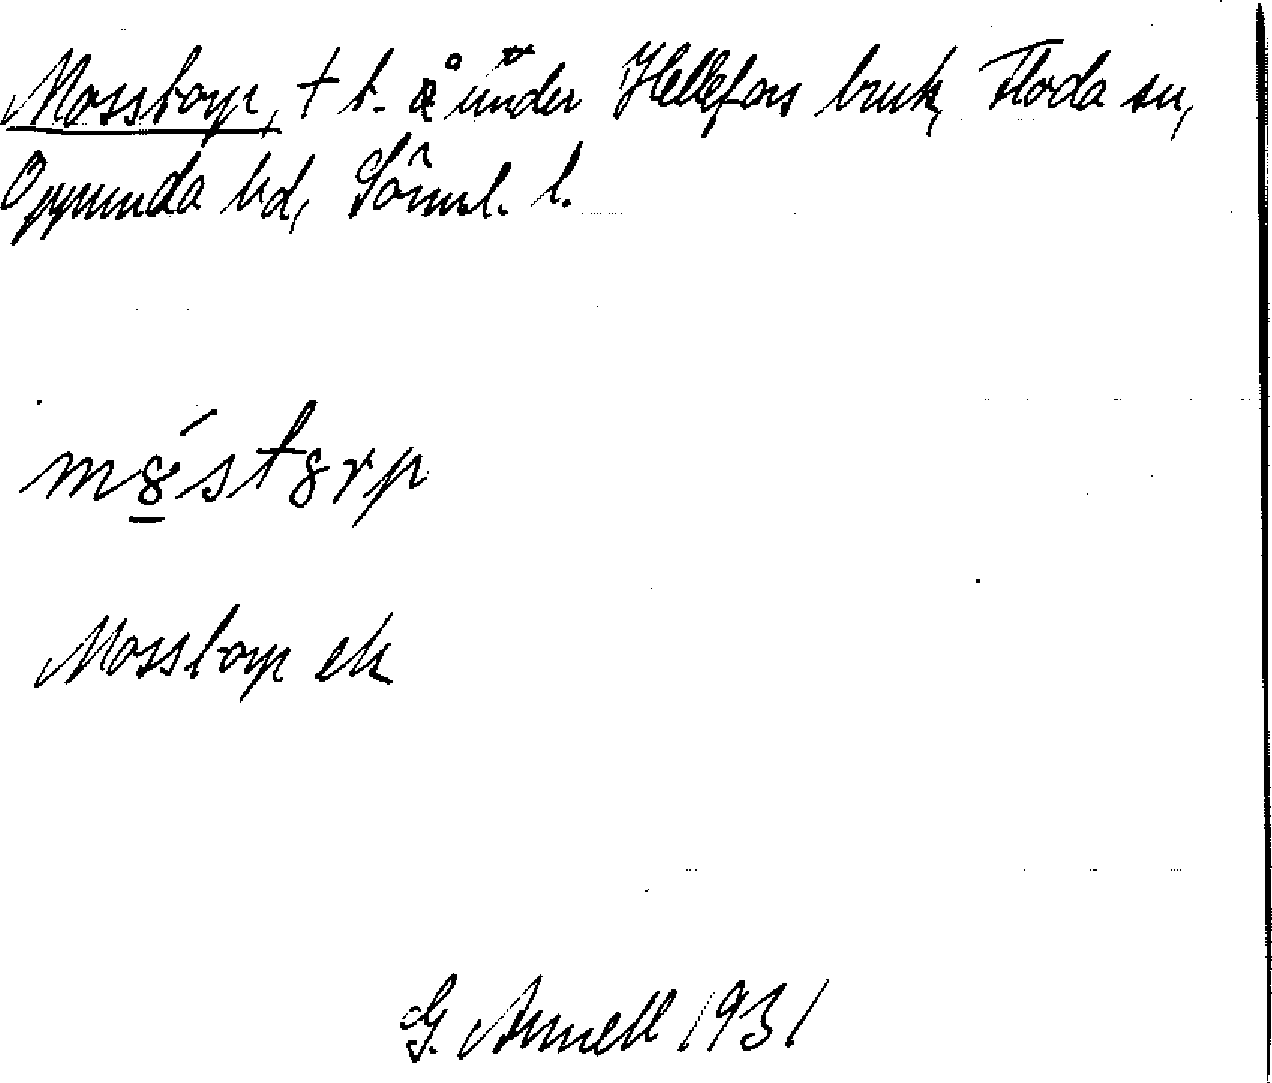 Mosstorp, † t. å under Hellefors bruk, Floda sn,
Oppunda hd, Sörml. l.
m8́st8rp
Mosstorp ek
G. Annell 1931